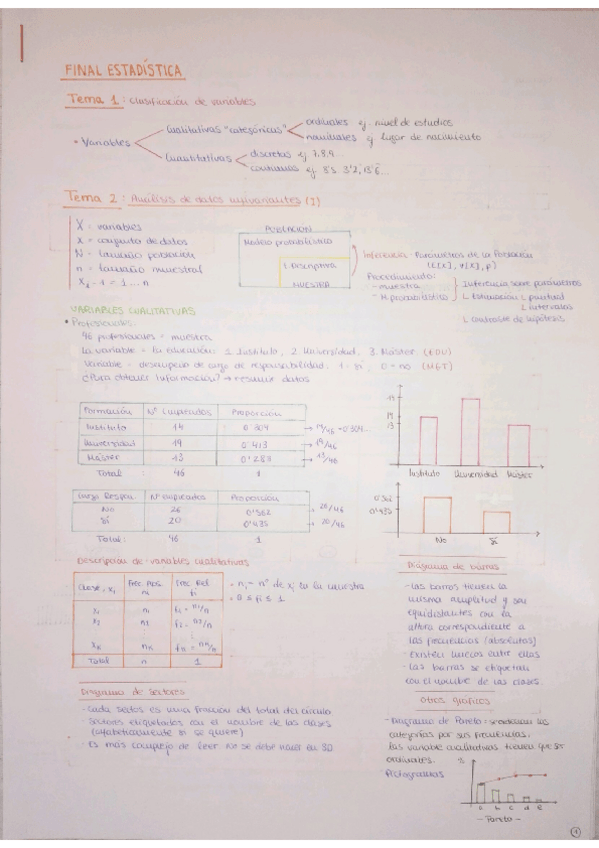 FINAL ESTADÍSTICA
Tema 1: Clasificación de variables
• Variables
Cualitativas "categóricas"
ordinales ej. nivel de estudios
nominales ej. lugar de nacimiento
Cuantitativas
discretas ej 7,8,9...
continuas ej.
Tema 2: Análisis de datos univariantes (I)
X = variables
x = conjunto de datos
N = tamaño población
n = tamaño muestral
xi - i = 1 ... n
POBLACIÓN
Modelo probabilístico
E. Descriptiva
MUESTRA
Inferencia: Parámetros de la Población
Procedimiento:
- muestra
- M. probabilístico
Inferencia sobre parámetros
L Estimación L puntual
L intervalos
L contraste de hipótesis
VARIABLES CUALITATIVAS
• Profesionales:
46 profesionales = muestra
La variable = la educación: 1. Instituto, 2. Universidad, 3. Máster. (EDU)
Variable = desempeño de cargo de responsabilidad. 1 = sí, 0 = no (MGT)
¿Para obtener información? → resumir datos
Formación Nº Empleados Proporción
Instituto 14 0'304 → 14/46 = 0'304...
Universidad 19 0'413 → 19/46
Máster 13 0'283 → 13/46
Total 46 1
Instituto Universidad Máster
Cargo Respon. Nº empleados Proporción
No 26 0'562 → 26/46
Sí 20 0'435 → 20/46
Total: 46 1
0'562
0'435
No Sí
Descripción de variables cualitativas
Clase, xi Frec. Abs. ni Frec. Rel. fi
x1 n1 f1 = n1/n
x2 n2 f2 = n2/n
xk nk fk = nk/n
Total n 1
• ni = nº de xi en la muestra
• 0 ≤ fi ≤ 1
Diagrama de barras
- Las barras tienen la
misma amplitud y son
equidistantes con la
altura correspondiente a
las frecuencias (absolutas)
- Existen huecos entre ellas
- Las barras se etiquetan
con el nombre de las clases.
Diagrama de Sectores
- Cada sector es una fracción del total del círculo.
- Sectores etiquetados con el nombre de las clases
(alfabéticamente si se quiere)
- Es más complejo de leer. No se debe hacer en 3D
Otros gráficos
- Diagrama de Pareto: se ordenan las
categorías por sus frecuencias.
Las variable cualitativas tienen que ser
ordinales.
- Pictogramas
%
- Pareto -
1